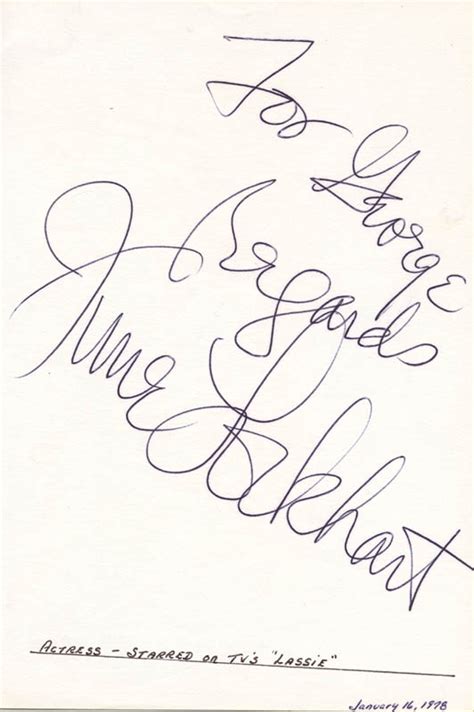 For George
Regards
June Lockhart
Actress - Starred on TV's "Lassie"
January 16, 1978